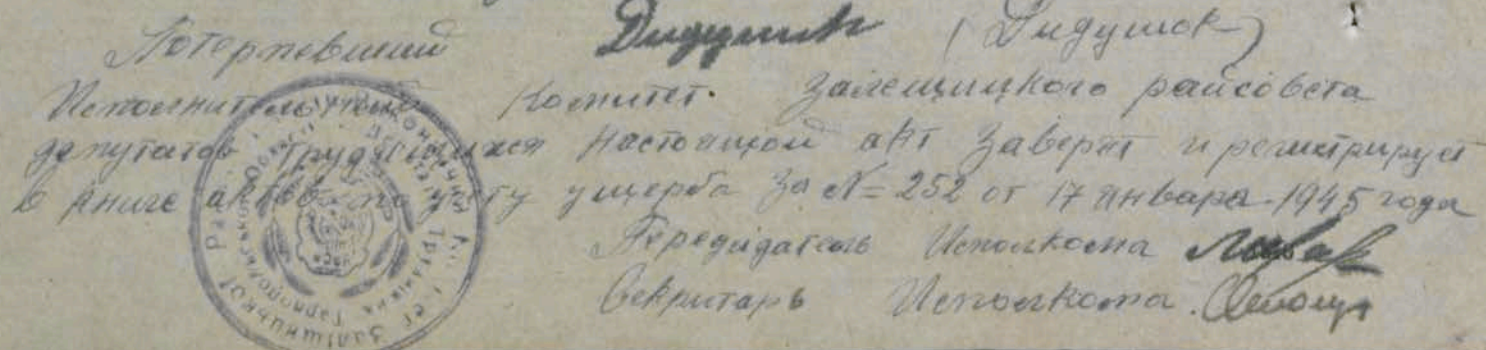 Потерпевший Дидушок (Дидушок)
Исполнительный Комитет Залещицкого райсовета
депутатов трудящихся настоящой акт заверят и регистрирует
в книге актов по учету ущерба за №=252 от 17 января 1945 года
Передидатель Исполкома
Секритарь Исполкома